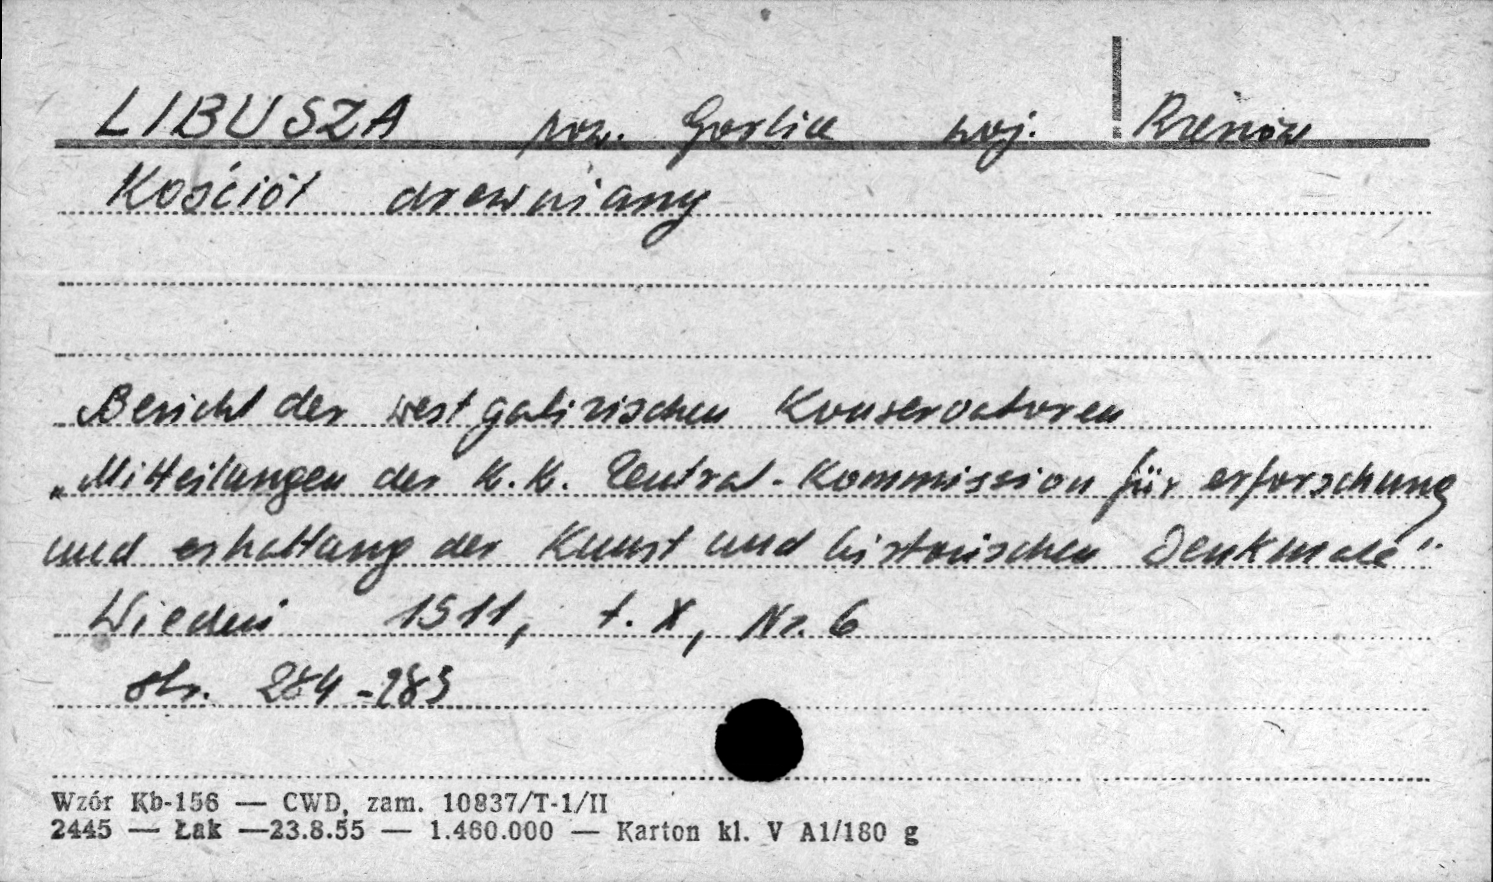 LIBUSZA pow. Gorlice woj. Rzeszów
Kościół drewniany
Bericht der westgalizischen Konservatoren
„Mitteilungen der K.K. Zentral-Kommission für erforschung
und erhaltung der Kunst und historischen Denkmale"
Wiedeń 1911, t. X, Nr. 6
str. 284-285
Wzór Kb-156 — CWD, zam. 10837/T-1/II
2445 — Łak —23.8.55 — 1.460.000 — Karton kl. V A1/180 g